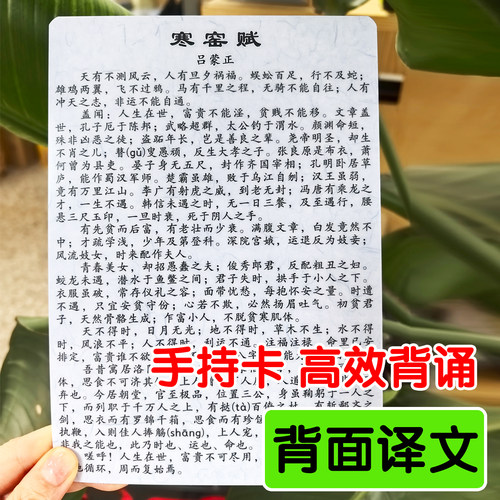 寒窑赋
吕蒙正
天有不测风云，人有旦夕祸福。蜈蚣百足，行不及蛇；
雄鸡两翼，飞不过鸦。马有千里之程，无骑不能自往；人有
冲天之志，非运不能自通。
盖闻：人生在世，富贵不能淫，贫贱不能移。文章盖
世，孔子厄于陈邦；武略超群，太公钓于渭水。颜渊命短，
殊非凶恶之徒；盗跖年长，岂是善良之辈。尧帝明圣，却生
不肖之儿；瞽(gǔ)叟愚顽，反生大孝之子。张良原是布衣，萧
何曾为县吏。晏子身无五尺，封作齐国宰相；孔明卧居草
庐，能作蜀汉军师。楚霸虽雄，败于乌江自刎；汉王虽弱，
竟有万里江山。李广有射虎之威，到老无封；冯唐有乘龙之
才，一生不遇。韩信未遇之时，无一日三餐，及至遇行，腰
悬三尺玉印，一旦时衰，死于阴人之手。
有先贫而后富，有老壮而少衰。满腹文章，白发竟然不
中；才疏学浅，少年及第登科。深院宫娥，运退反为妓妾；
风流妓女，时来配作夫人。
青春美女，却招愚蠢之夫；俊秀郎君，反配粗丑之妇。
蛟龙未遇，潜水于鱼鳖之间；君子失时，拱手于小人之下。
衣服虽破，常存仪礼之容；面带忧愁，每抱怀安之量。时遭
不遇，只宜安贫守份；心若不欺，必然扬眉吐气。初贫君
子，天然骨骼生成；乍富小人，不脱贫寒肌体。
天不得时，日月无光；地不得时，草木不生；水不得
时，风浪不平；人不得时，利运不通。注福注禄，命里已安
排定，富贵谁不欲
吾昔寓居洛
体，思食不可济其
弃也。今居朝堂，官至极品，位置三公，身虽鞠躬于一人之
下，而列职于千万人之上，有挞(tà)百僚之
剑，思衣而有罗锦千箱，思食而有珍馐
执鞭，入则佳人捧觞(shāng)，上人宠，
非我之能也，此乃时也、运也、命也。
嗟呼！人生在世，富贵不可尽用，
地循环，周而复始焉。
手持卡 高效背诵
背面译文